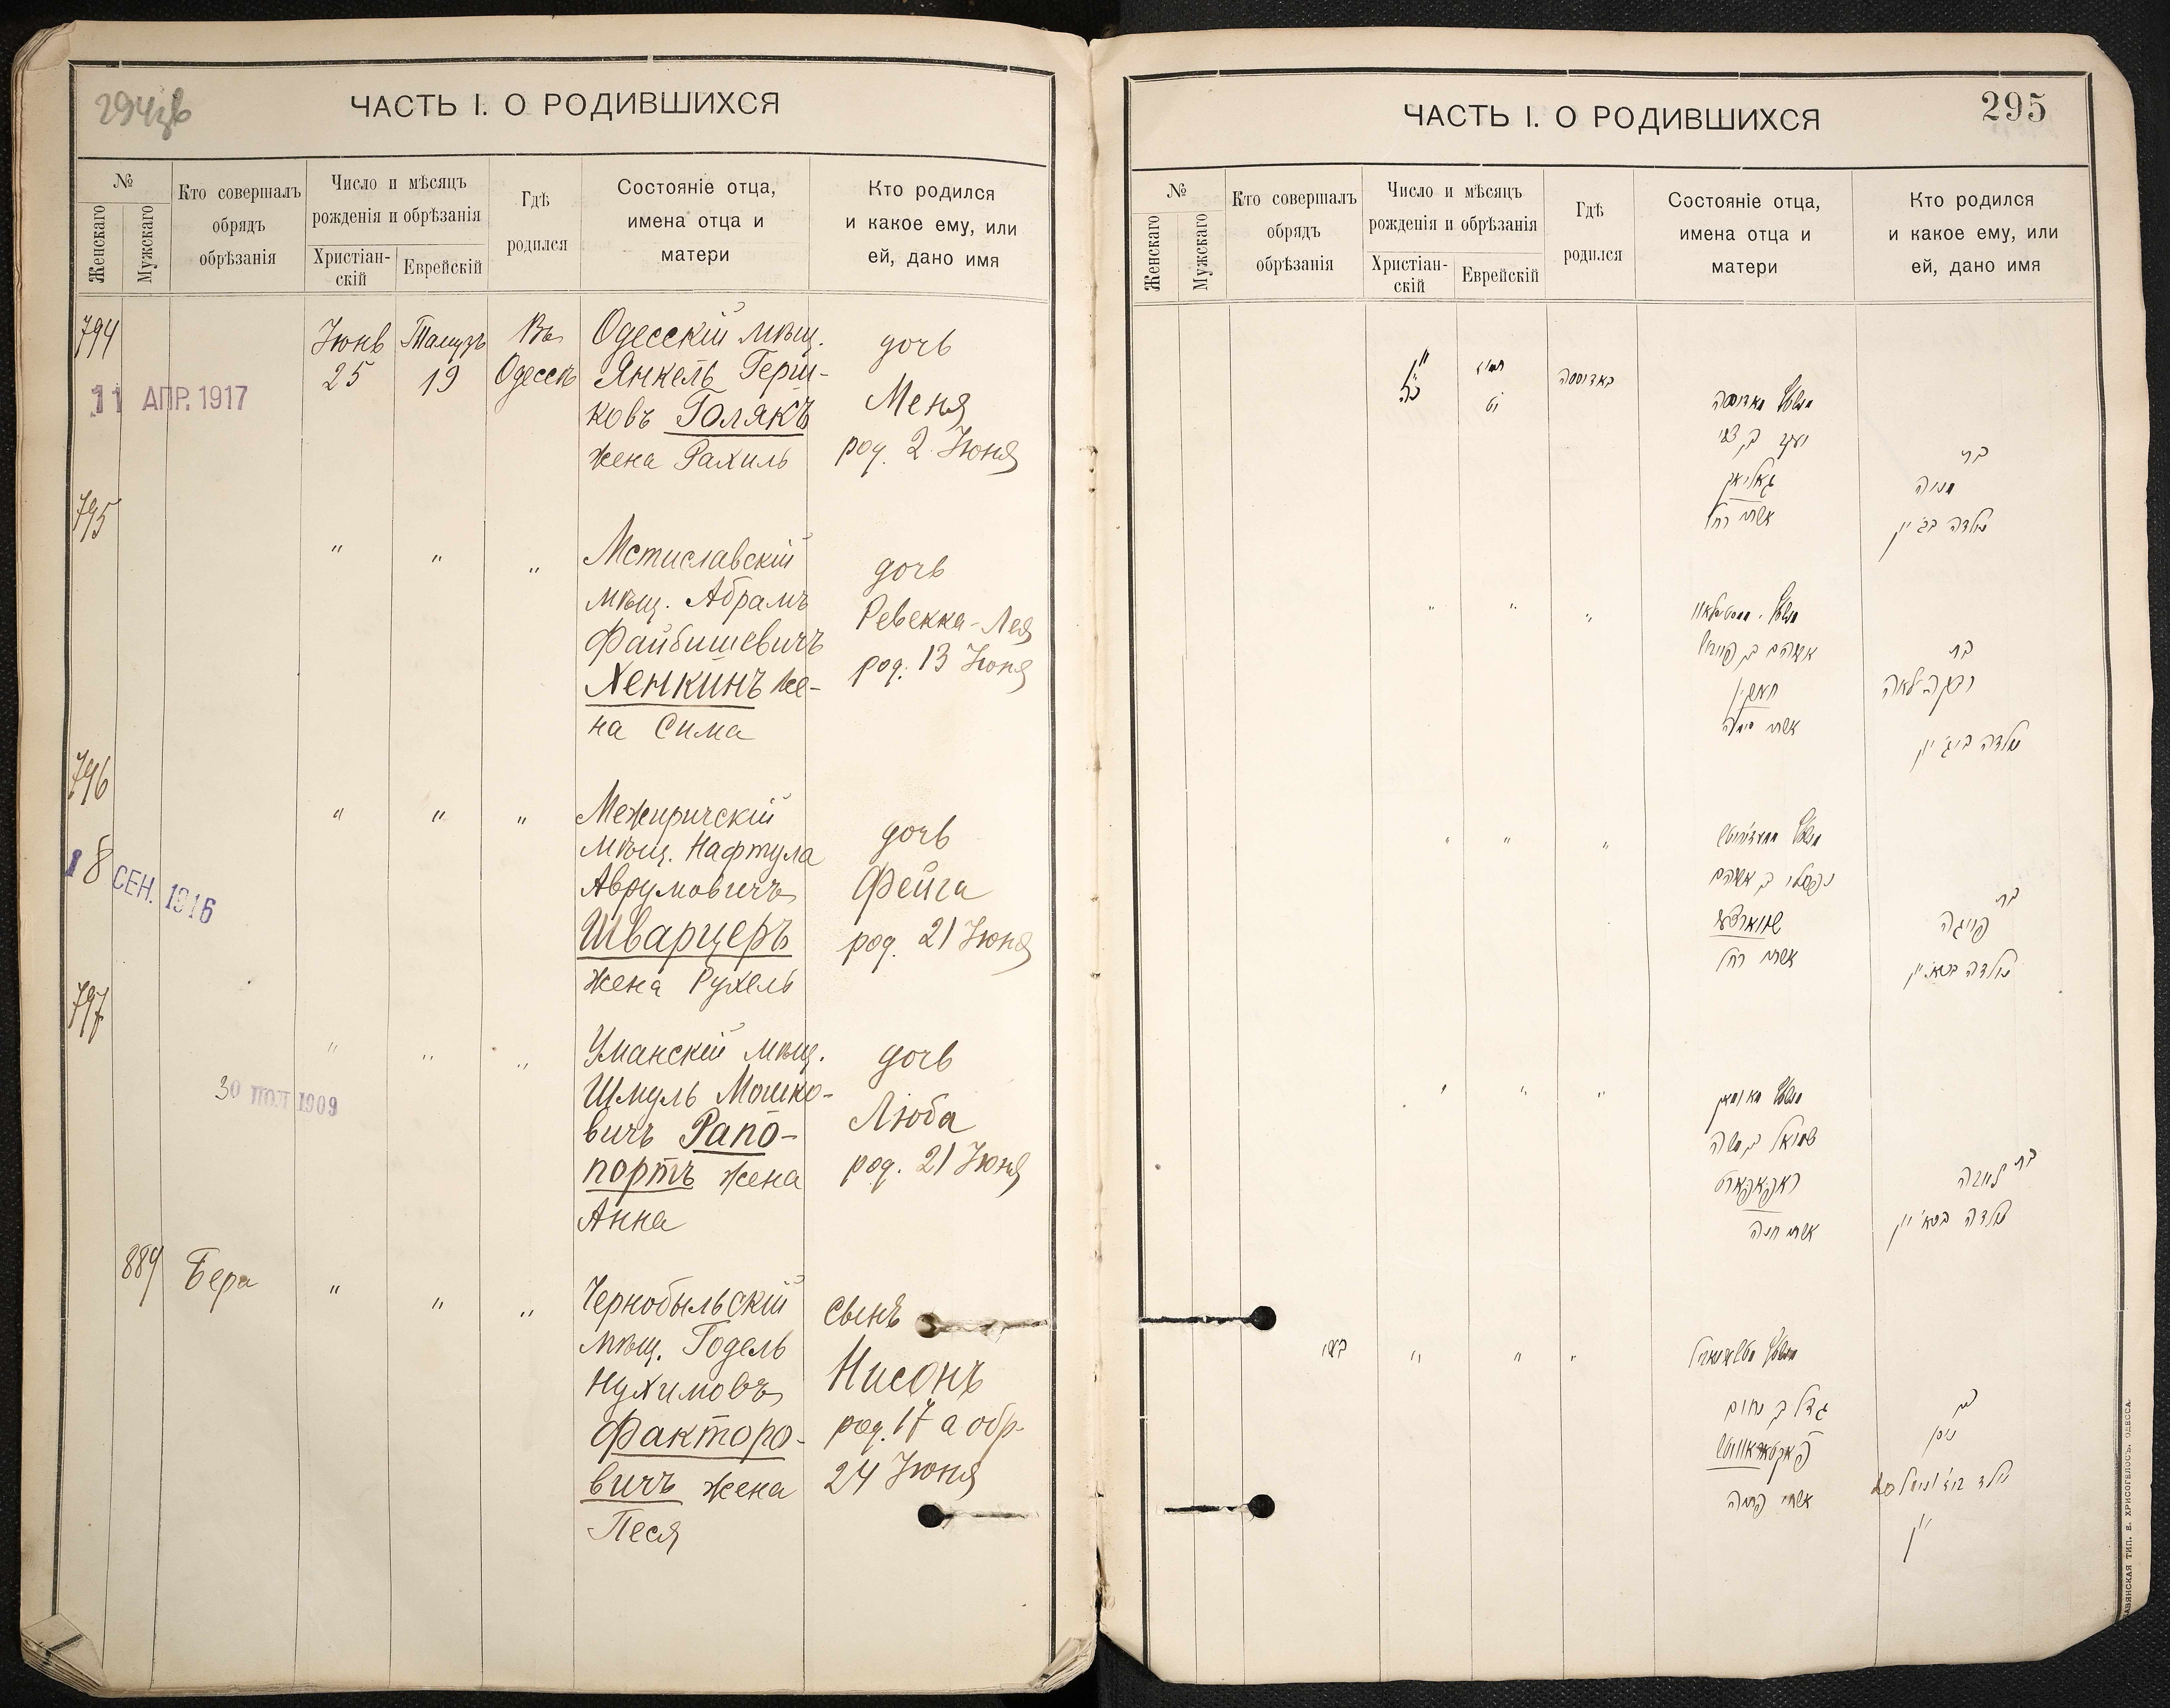 294зв
ЧАСТЬ I. О РОДИВШИХСЯ
№
Женскаго
Мужскаго
Кто совершалъ
обрядъ
обрѣзанія
Число и мѣсяцъ
рожденія и обрѣзанія
Христіан-
скій
Еврейскій
Гдѣ
родился
Состояніе отца,
имена отца и
матери
Кто родился
и какое ему, или
ей, дано имя
794
11 АПР. 1917
Іюнь
25
Тамузъ
19
Въ
Одессѣ
Одесскій мѣщ.
Янкель Герш-
ковъ Голякъ
жена Рахиль
дочь
Меня
род. 2 Іюня
795
" " "
Мстиславскій
мѣщ. Абрамъ
Файбишевичъ
Хенкинъ же-
на Сима
дочь
Ревекка-Лея
род. 13 Іюня
796
18 СЕН. 1916
" " "
Межиричскій
мѣщ. Нафтула
Аврумовичъ
Шварцеръ
жена Рухель
дочь
Фейга
род. 21 Іюня
797
30 ІЮЛ 1909
" " "
Уманскій мѣщ.
Шмуль Мошко-
вичъ Рапо-
портъ жена
Анна
дочь
Люба
род. 21 Іюня
889
Бера
" " "
Чернобыльскій
мѣщ. Годель
Нухимовъ
Факторо-
вичъ жена
Песя
сынъ
Нисонъ
род. 17 а обр.
24 Іюня
ЧАСТЬ I. О РОДИВШИХСЯ
295
№
Женскаго
Мужскаго
Кто совершалъ
обрядъ
обрѣзанія
Число и мѣсяцъ
рожденія и обрѣзанія
Христіан-
скій
Еврейскій
Гдѣ
родился
Состояніе отца,
имена отца и
матери
Кто родился
и какое ему, или
ей, дано имя
תמוז
יט
באדוססה
יעקב ב צבי
גאליאק
אשתו רחל
בת
מניה
נולדה בב' יון
" " "
אברהם ב פייביש
חנקין
אשתו סימה
בת
רבקה־לאה
נולדה ביג' יון
" " "
נפתלי ב אברהם
שווארצער
אשתו רחל
בת
פייגה
נולדה בכא' יון
" " "
שמואל ב משה
ראפאפארט
אשתו חנה
בת
ליובה
נולדה בכא' יון
" " "
גדל ב נחום
פאקטאראוויטש
אשתו פסיה
בן
ניסן
יון
ТИП. Е. ХРИСОГЕЛОСЪ. ОДЕССА.